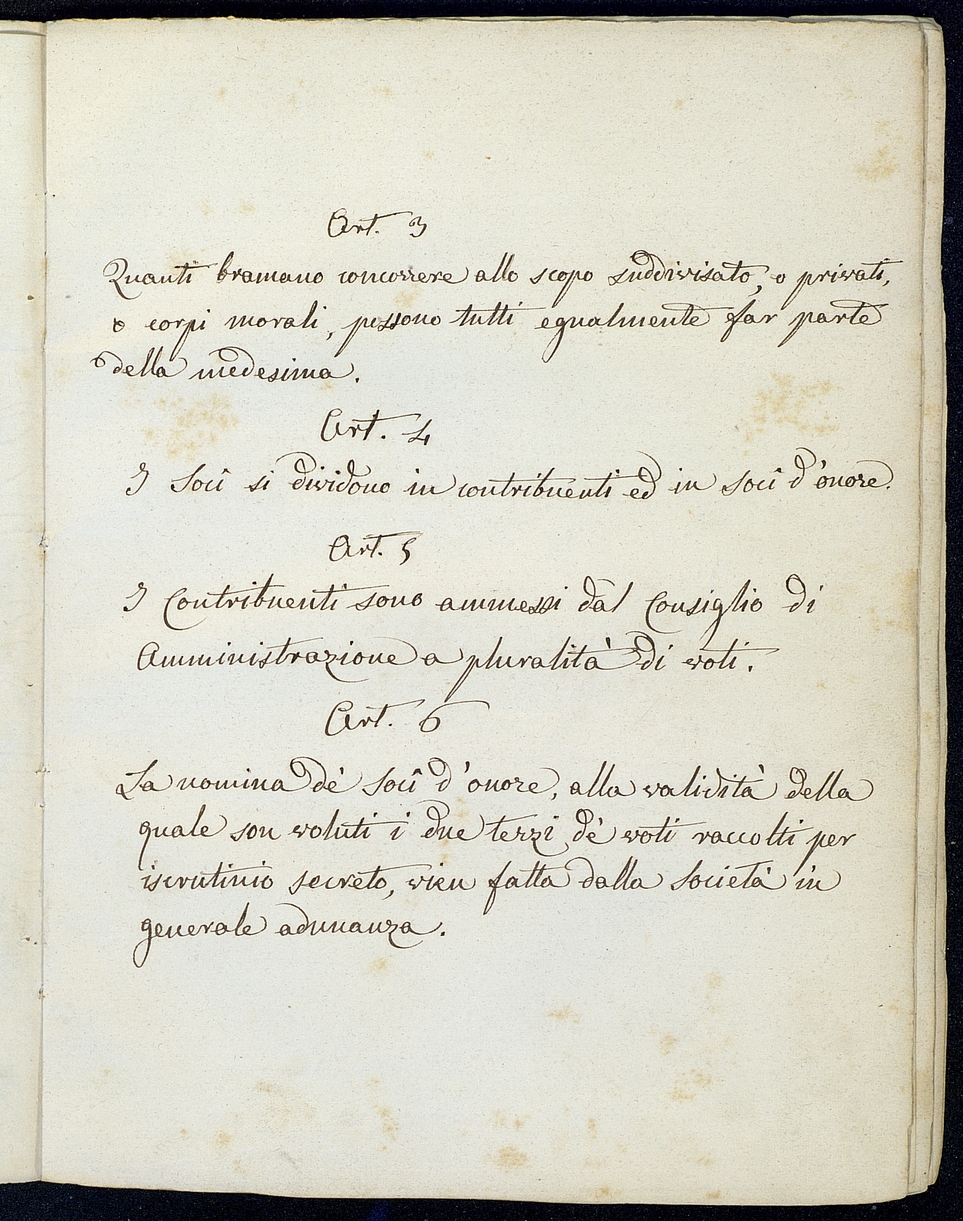 Art. 3
Quanti bramano concorrere allo scopo suddivisato, o privati,
o corpi morali, possono tutti egualmente far parte
della medesima.
Art. 4
I Socî si dividono in contribuenti ed in socî d'onore.
Art. 5
I Contribuenti sono ammessi dal Consiglio di
Amministrazione a pluralità di voti.
Art. 6
La nomina de' Socî d'onore, alla validità della
quale son voluti i due terzi de' voti raccolti per
iscrutinio secreto, vien fatta dalla Società in
generale adunanza.